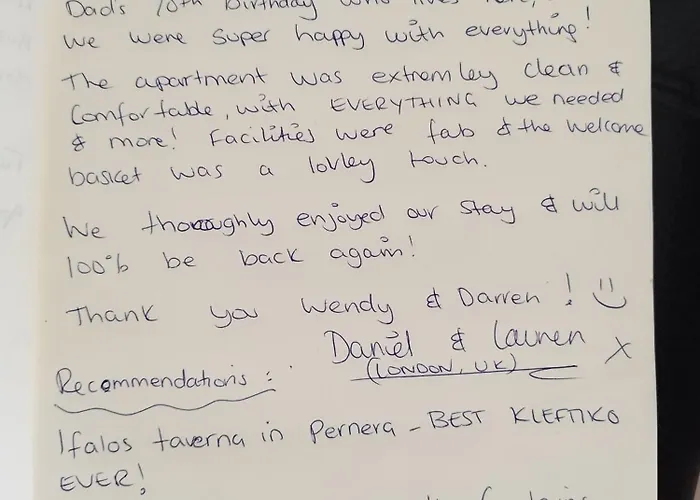 Dad's 70th Birthday who lives here,
We were super happy with everything!
The apartment was extremley clean &
Comfortable, with EVERYTHING we needed
& more! Facilities were fab & the welcome
basket was a lovley touch.
We thoroughly enjoyed our stay & will
100% be back again!
Thank you Wendy & Darren! :)
Daniel & Lauren x
(LONDON, UK)
Recommendations :
Ifalos taverna in Pernera - BEST KLEFTIKO
EVER!